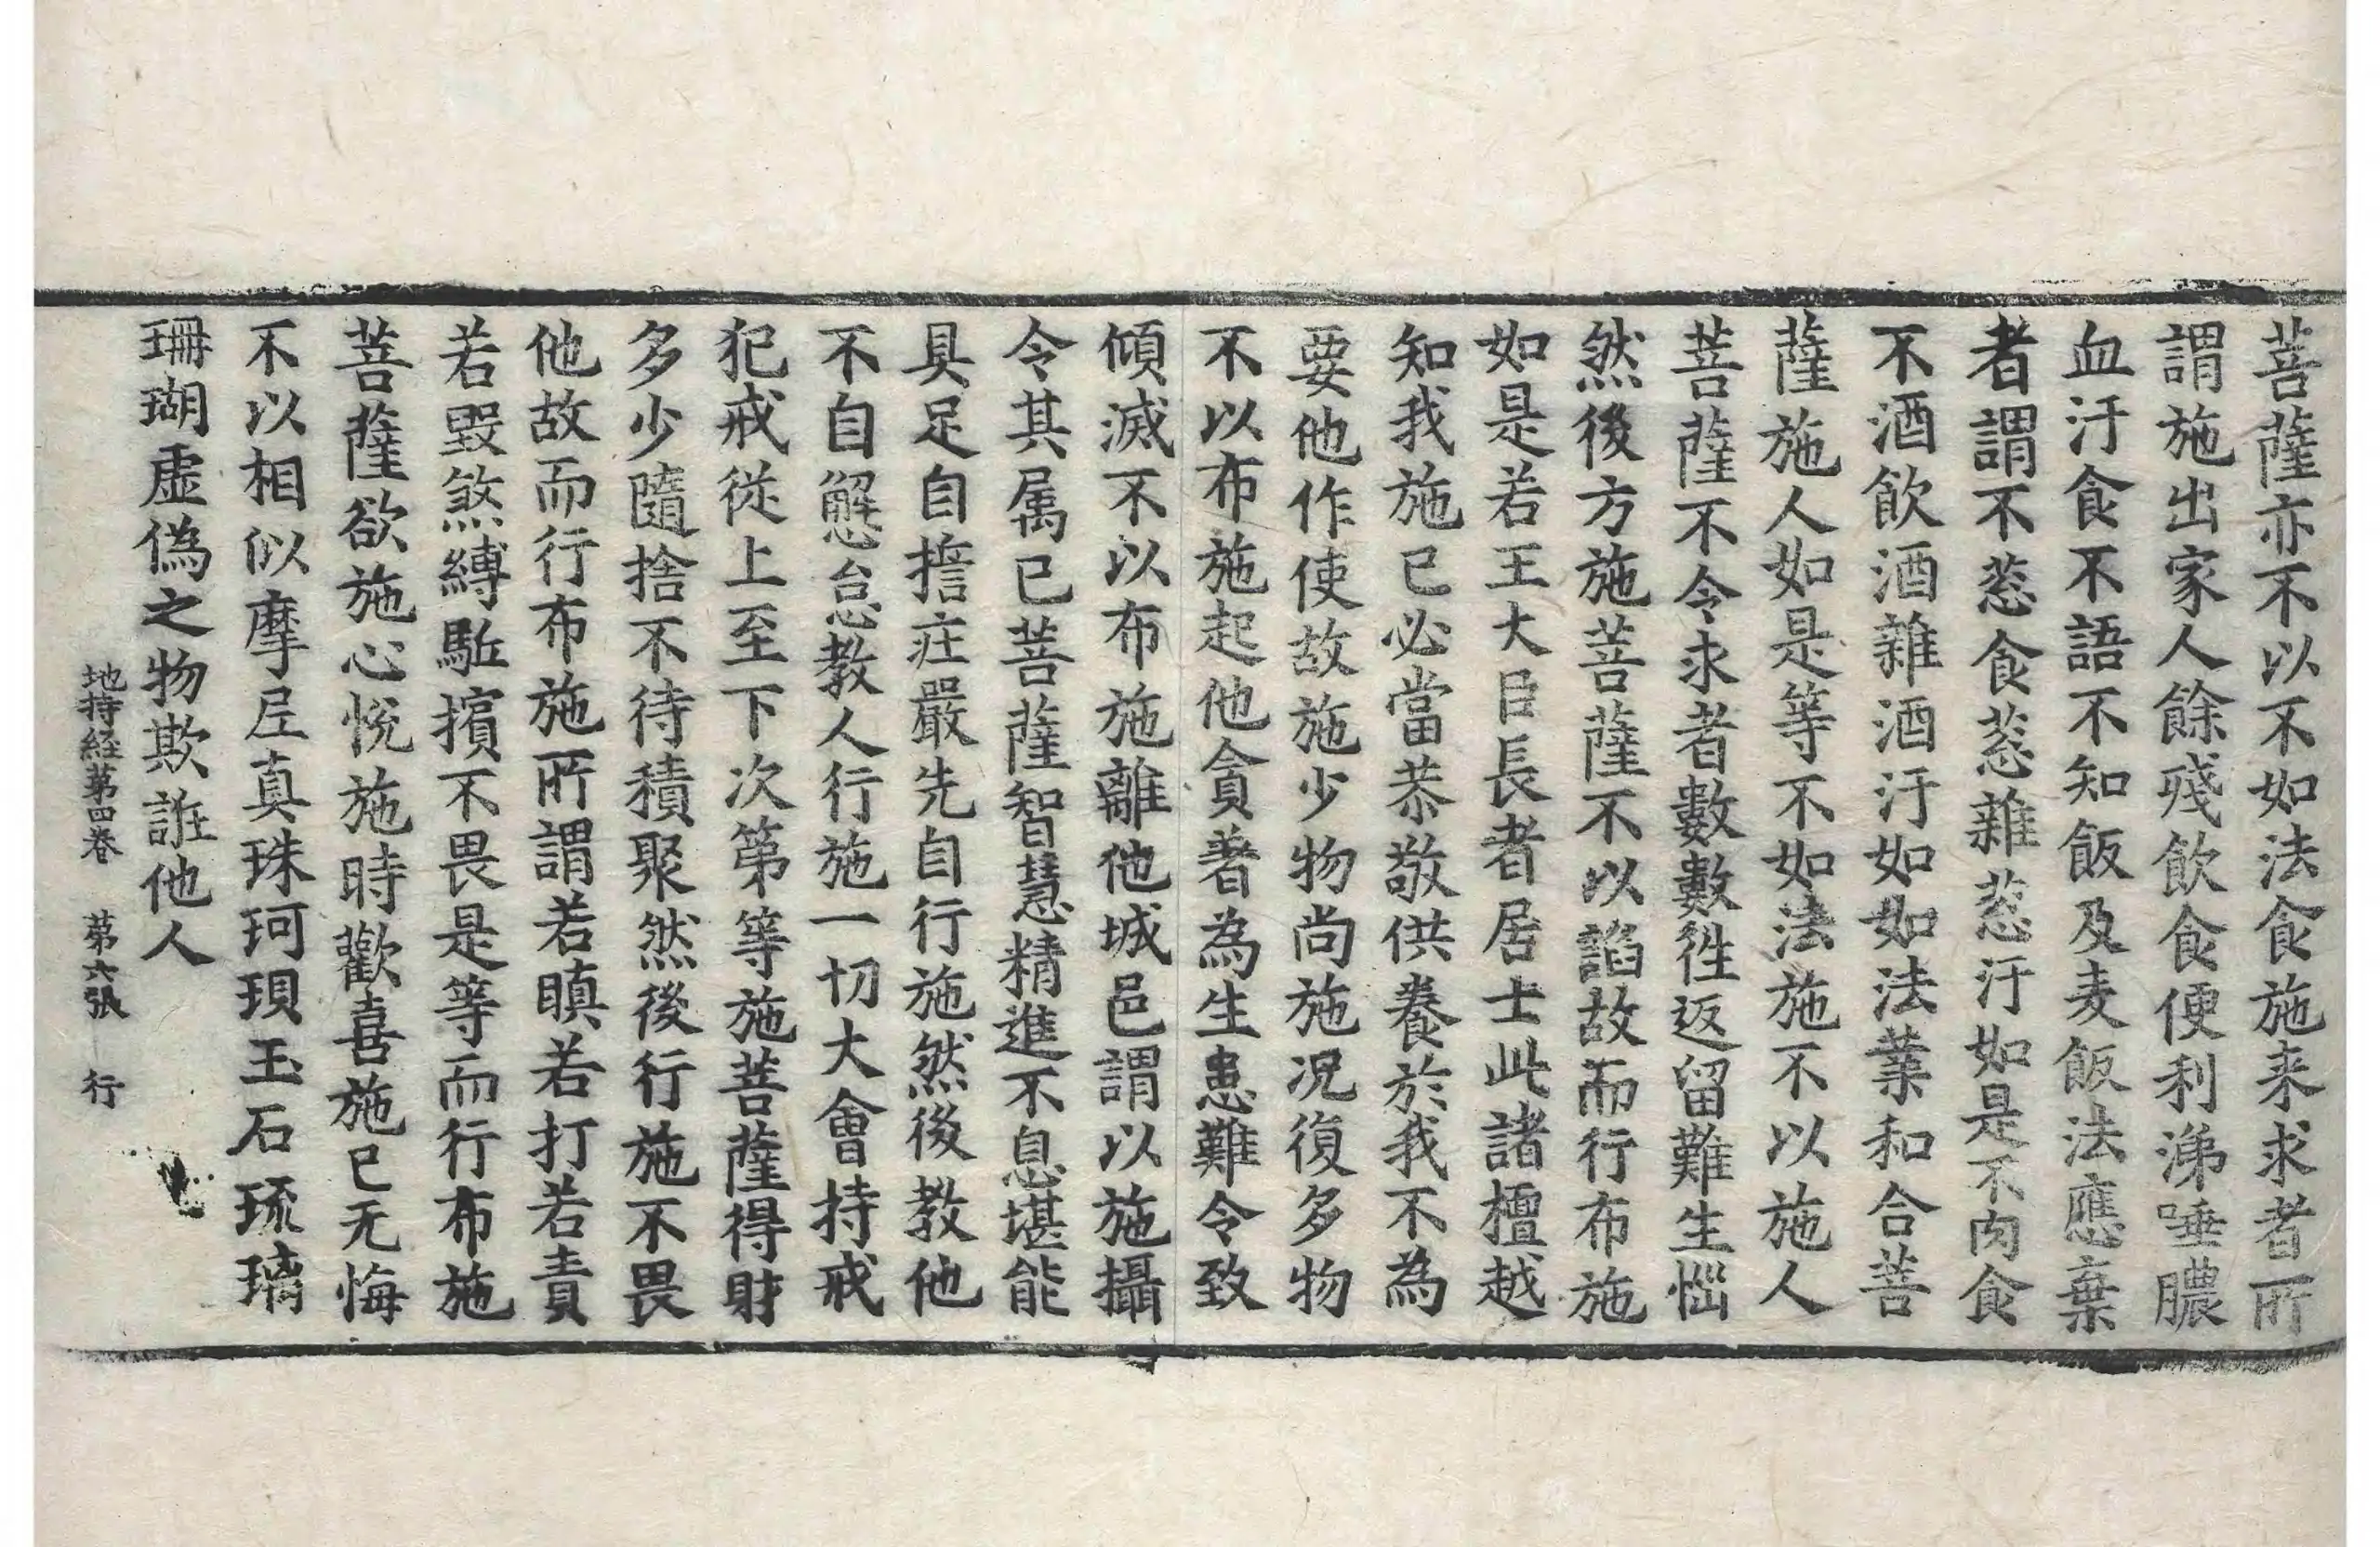 菩薩亦不以不如法食施来求者所
謂施出家人餘殘飲食便利涕唾膿
血汙食不語不知飯及麦飯法應棄
者謂不葱食葱雜葱汙如是不肉食
不酒飲酒雜酒汙如如法業和合菩
薩施人如是等不如法施不以施人
菩薩不令求者數數徃返留難生惱
然後方施菩薩不以謟故而行布施
如是若王大臣長者居士此諸檀越
知我施已必當恭敬供養於我不為
要他作使故施少物尚施况復多物
不以布施起他貪著為生患難令致
傾滅不以布施離他城邑謂以施攝
令其属已菩薩智慧精進不息堪能
具足自擔莊嚴先自行施然後教他
不自懈怠教人行施一切大會持戒
犯戒從上至下次第等施菩薩得財
多少隨捨不待積聚然後行施不畏
他故而行布施所謂若瞋若打若責
若毀煞縛駈擯不畏是等而行布施
菩薩欲施心恱施時歡喜施已无悔
不以相似摩尼真珠珂珼玉石琉璃
珊瑚虛偽之物欺誑他人
地持経苐四卷　苐六張　行